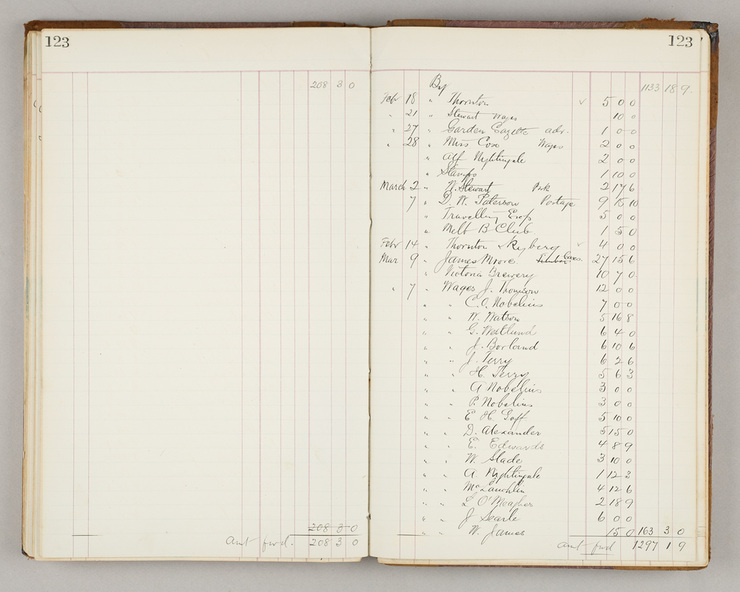 123
208 3 0
208 3 0
Amt fwd. 208 3 0
123
By 1133 18 9
Febr 18 " Thornton √ 5 0 0
" 21 " Stewart Wages 10 0
" 27 " Garden Gazette adv. 1 0 0
" 28 " Miss Cox Wages 2 0 0
" Alf Nightingale 2 0 0
" Stamps 1 10 0
March 2 " N. Stewart 2 17 6
7 " D. W. Paterson Potash 9 15 10
" Travelling Exps 5 0 0
" Melb B Club 1 5 0
Febr 14 " Thornton & Keyberg √ 4 0 0
Mar 9 " James Moore Cases 27 15 6
" Victoria Brewery 10 7 0
" 7 " Wages J. Thomson 12 0 0
" " C. A. Nobelius 7 0 0
" " W. Watson 5 16 8
" " G. Watland 6 4 0
" " J. Borland 6 10 6
" " J. Terry 6 2 6
" " H. Terry 5 6 3
" " A Nobelius 3 0 0
" " P. Nobelius 3 0 0
" " E. H. Goff 5 10 0
" " D. Alexander 5 15 0
" " E. Edwards 4 8 9
" " W. Slade 3 10 0
" " A. Nightingale 1 12 2
" " McLauchlin 4 12 6
" " O'Meagher 2 18 9
" " J Searle 6 0 0
" " W. James 15 0 163 3 0
Amt fwd 1297 1 9